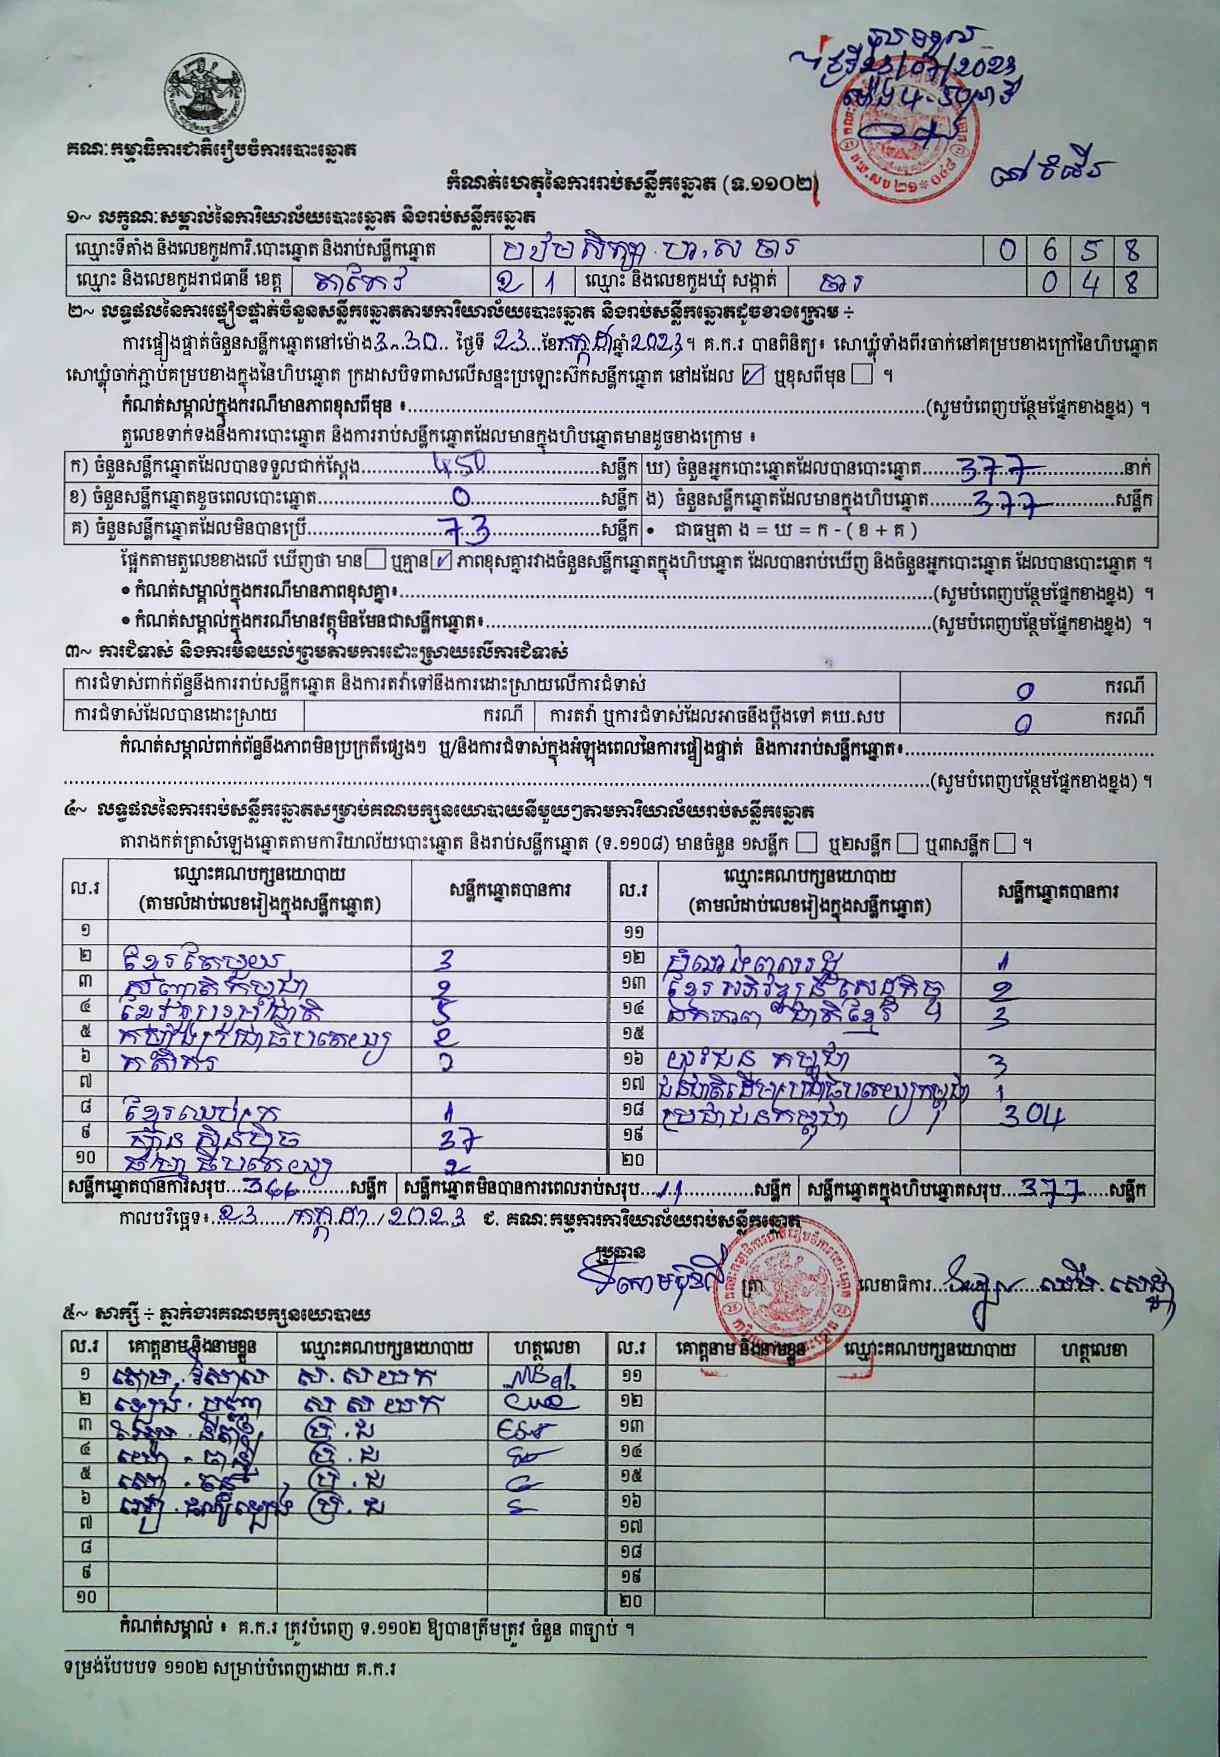 បានទទួល
ថ្ងៃទី23/07/2023
ម៉ោង 4-50 នាទី
គណៈកម្មាធិការជាតិរៀបចំការបោះឆ្នោត
កំណត់ហេតុនៃការរាប់សន្លឹកឆ្នោត (ទ.១១០២)
១~ លក្ខណៈសម្គាល់នៃការិយាល័យបោះឆ្នោត និងរាប់សន្លឹកឆ្នោត
ឈ្មោះទីតាំង និងលេខកូដការិ.បោះឆ្នោត និងរាប់សន្លឹកឆ្នោត បឋមសិក្សា ហ.ស ចារ 0 6 5 8
ឈ្មោះ និងលេខកូដរាជធានី ខេត្ត តាកែវ 2 1 ឈ្មោះ និងលេខកូដឃុំ សង្កាត់ ចារ 0 4 8
២~ លទ្ធផលនៃការផ្ទៀងផ្ទាត់ចំនួនសន្លឹកឆ្នោតតាមការិយាល័យបោះឆ្នោត និងរាប់សន្លឹកឆ្នោតដូចខាងក្រោម ÷
ការផ្ទៀងផ្ទាត់ចំនួនសន្លឹកឆ្នោតនៅម៉ោង 3..30.. ថ្ងៃទី 23 ខែ កក្កដា ឆ្នាំ 2023 ។ គ.ក.រ បានពិនិត្យ៖ សោឃ្លុំទាំងពីរចាក់នៅគម្របខាងក្រៅនៃហិបឆ្នោត
សោឃ្លុំចាក់ភ្ជាប់គម្របខាងក្នុងនៃហិបឆ្នោត ក្រដាសបិទពាសលើសន្ទះប្រឡោះស៊កសន្លឹកឆ្នោត នៅដដែល ☑ ឬខុសពីមុន ☐ ។
កំណត់សម្គាល់ក្នុងករណីមានភាពខុសពីមុន ៖ (សូមបំពេញបន្ថែមផ្នែកខាងខ្នង) ។
តួលេខទាក់ទងនឹងការបោះឆ្នោត និងការរាប់សន្លឹកឆ្នោតដែលមានក្នុងហិបឆ្នោតមានដូចខាងក្រោម ៖
ក) ចំនួនសន្លឹកឆ្នោតដែលបានទទួលជាក់ស្តែង 450 សន្លឹក ឃ) ចំនួនអ្នកបោះឆ្នោតដែលបានបោះឆ្នោត 377 នាក់
ខ) ចំនួនសន្លឹកឆ្នោតខូចពេលបោះឆ្នោត 0 សន្លឹក ង) ចំនួនសន្លឹកឆ្នោតដែលមានក្នុងហិបឆ្នោត 377 សន្លឹក
គ) ចំនួនសន្លឹកឆ្នោតដែលមិនបានប្រើ 73 សន្លឹក • ជាធម្មតា ង = ឃ = ក - ( ខ + គ )
ផ្អែកតាមតួលេខខាងលើ ឃើញថា មាន ☐ ឬគ្មាន ☑ ភាពខុសគ្នារវាងចំនួនសន្លឹកឆ្នោតក្នុងហិបឆ្នោត ដែលបានរាប់ឃើញ និងចំនួនអ្នកបោះឆ្នោត ដែលបានបោះឆ្នោត ។
• កំណត់សម្គាល់ក្នុងករណីមានភាពខុសគ្នា៖ (សូមបំពេញបន្ថែមផ្នែកខាងខ្នង) ។
• កំណត់សម្គាល់ក្នុងករណីមានវត្ថុមិនមែនជាសន្លឹកឆ្នោត៖ (សូមបំពេញបន្ថែមផ្នែកខាងខ្នង) ។
៣~ ការជំទាស់ និងការមិនយល់ព្រមតាមការដោះស្រាយលើការជំទាស់
ការជំទាស់ពាក់ព័ន្ធនឹងការរាប់សន្លឹកឆ្នោត និងការតវ៉ាទៅនឹងការដោះស្រាយលើការជំទាស់ 0 ករណី
ការជំទាស់ដែលបានដោះស្រាយ ករណី ការតវ៉ា ឬការជំទាស់ដែលអាចនឹងប្តឹងទៅ គឃ.សប 0 ករណី
កំណត់សម្គាល់ពាក់ព័ន្ធនឹងភាពមិនប្រក្រតីផ្សេងៗ ឬ/និងការជំទាស់ក្នុងអំឡុងពេលនៃការផ្ទៀងផ្ទាត់ និងការរាប់សន្លឹកឆ្នោត៖
(សូមបំពេញបន្ថែមផ្នែកខាងខ្នង) ។
៤~ លទ្ធផលនៃការរាប់សន្លឹកឆ្នោតសម្រាប់គណបក្សនយោបាយនីមួយៗតាមការិយាល័យរាប់សន្លឹកឆ្នោត
តារាងកត់ត្រាសំឡេងឆ្នោតតាមការិយាល័យបោះឆ្នោត និងរាប់សន្លឹកឆ្នោត (ទ.១១០៨) មានចំនួន ១សន្លឹក ☐ ឬ២សន្លឹក ☐ ឬ៣សន្លឹក ☐ ។
ល.រ ឈ្មោះគណបក្សនយោបាយ (តាមលំដាប់លេខរៀងក្នុងសន្លឹកឆ្នោត) សន្លឹកឆ្នោតបានការ ល.រ ឈ្មោះគណបក្សនយោបាយ (តាមលំដាប់លេខរៀងក្នុងសន្លឹកឆ្នោត) សន្លឹកឆ្នោតបានការ
១ ១១
២ ខ្មែរតែមួយ 3 ១២ 1
៣ សញ្ជាតិកម្ពុជា 2 ១៣ ខ្មែរអភិវឌ្ឍន៍សេដ្ឋកិច្ច 2
៤ ខ្មែររួបរួមជាតិ 5 ១៤ ឯកភាពជាតិខ្មែរ 3
៥ កម្លាំងប្រជាធិបតេយ្យ 2 ១៥
៦ កសិករ ១៦ យុវជន កម្ពុជា 3
៧ ១៧ ជនជាតិដើមប្រជាធិបតេយ្យកម្ពុជា 1
៨ ខ្មែរឈប់ក្រ 1 ១៨ ប្រជាជនកម្ពុជា 304
៩ ហ្វ៊ុនស៊ិនប៉ិច 37 ១៩
១០ ធម្មាធិបតេយ្យ 2 ២០
សន្លឹកឆ្នោតបានការសរុប 366 សន្លឹក សន្លឹកឆ្នោតមិនបានការពេលរាប់សរុប 11 សន្លឹក សន្លឹកឆ្នោតក្នុងហិបឆ្នោតសរុប 377 សន្លឹក
កាលបរិច្ឆេទ៖ 23 / កក្កដា / 2023 ជ. គណៈកម្មការការិយាល័យរាប់សន្លឹកឆ្នោត
ប្រធាន ត្រា លេខាធិការ
៥~ សាក្សី ÷ ភ្នាក់ងារគណបក្សនយោបាយ
ល.រ គោត្តនាម និងនាមខ្លួន ឈ្មោះគណបក្សនយោបាយ ហត្ថលេខា ល.រ គោត្តនាម និងនាមខ្លួន ឈ្មោះគណបក្សនយោបាយ ហត្ថលេខា
១ ស.ស យ ក ១១
២ ស ស យ ក ១២
៣ ប្រ.ជ ១៣
៤ ប្រ.ជ ១៤
៥ ប្រ.ជ ១៥
៦ ប្រ.ជ ១៦
៧ ១៧
៨ ១៨
៩ ១៩
១០ ២០
កំណត់សម្គាល់ ៖ គ.ក.រ ត្រូវបំពេញ ទ.១១០២ ឱ្យបានត្រឹមត្រូវ ចំនួន ៣ច្បាប់ ។
ទម្រង់បែបបទ ១១០២ សម្រាប់បំពេញដោយ គ.ក.រ